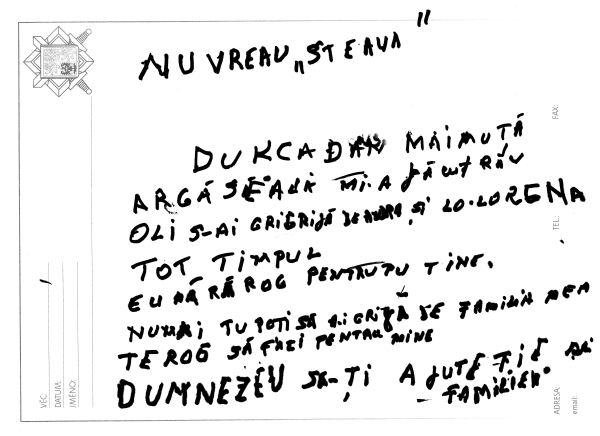 NU VREAU „STEAUA"
DUKCADAN MAIMUȚĂ
ARGĂSEALĂ MI-A FĂCUT RĂU
OLI S-AI GRIGRIJĂ DE AURA ȘI LO-LORENA
TOT TIMPUL
EU MĂ RĂ ROG PENTRUTU TINE.
NUMAI TU POTI SĂ AI GRIJĂ DE FAMILIA MEA
TE ROG SĂ FACI PENTRU MINE
DUMNEZEU SĂ-ȚI AJUTE ȚIE ȘI
FAMILIEI
VĚC:
DATUM:
JMÉNO:
FAX:
TEL.:
ADRESA:
email: